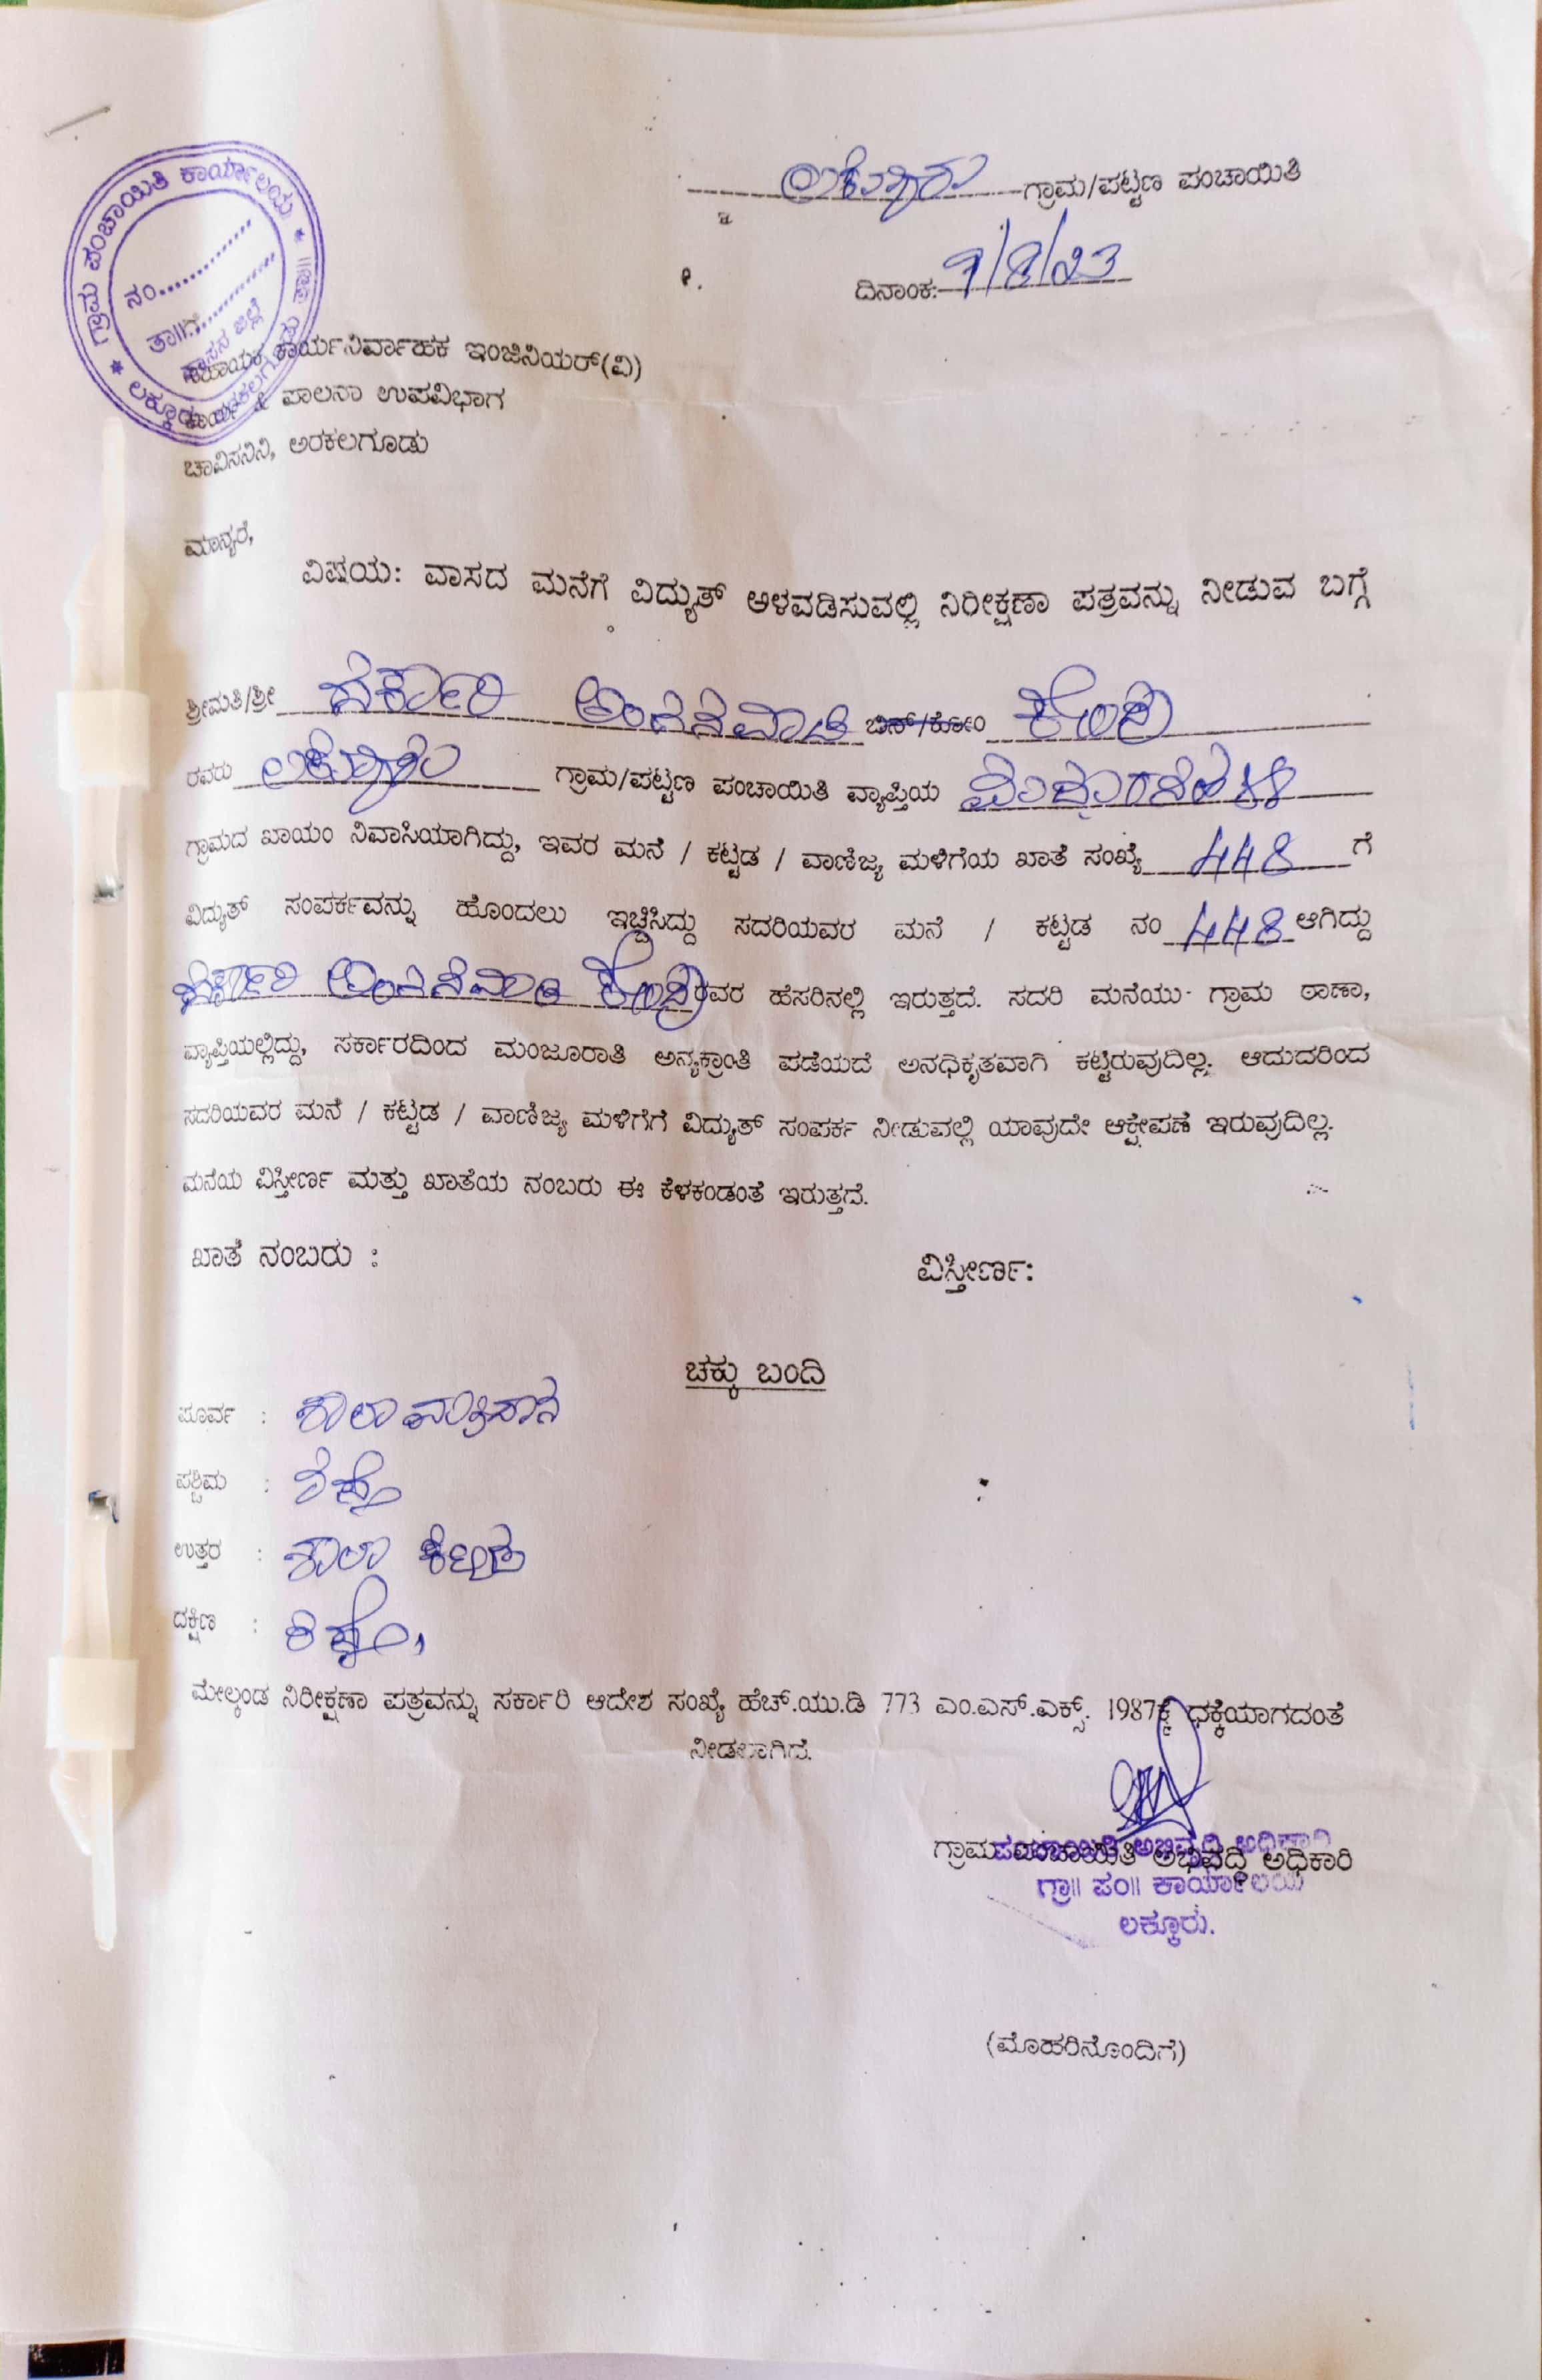 ಲಕ್ಕೂರು ಗ್ರಾಮ/ಪಟ್ಟಣ ಪಂಚಾಯಿತಿ
ದಿನಾಂಕ: 9/8/23
ಗ್ರಾಮ ಪಂಚಾಯಿತಿ ಕಾರ್ಯಾಲಯ
ನಂ.............
ತಾ||ಗೆ.............
ಹಾಸನ ಜಿಲ್ಲೆ
ಸಹಾಯಕ ಕಾರ್ಯನಿರ್ವಾಹಕ ಇಂಜಿನಿಯರ್(ವಿ)
ಕಾರ್ಯ & ಪಾಲನಾ ಉಪವಿಭಾಗ
ಚಾವಿಸನಿನಿ, ಅರಕಲಗೂಡು
ಮಾನ್ಯರೆ,
ವಿಷಯ: ವಾಸದ ಮನೆಗೆ ವಿದ್ಯುತ್ ಅಳವಡಿಸುವಲ್ಲಿ ನಿರೀಕ್ಷಣಾ ಪತ್ರವನ್ನು ನೀಡುವ ಬಗ್ಗೆ
ಶ್ರೀಮತಿ/ಶ್ರೀ ಸರ್ಕಾರಿ ಅಂಗನವಾಡಿ ಬಿನ್/ಕೋಂ ಕೇಂದ್ರ
ರವರು ಲಕ್ಕೂರು ಗ್ರಾಮ/ಪಟ್ಟಣ ಪಂಚಾಯಿತಿ ವ್ಯಾಪ್ತಿಯ
ಗ್ರಾಮದ ಖಾಯಂ ನಿವಾಸಿಯಾಗಿದ್ದು, ಇವರ ಮನೆ / ಕಟ್ಟಡ / ವಾಣಿಜ್ಯ ಮಳಿಗೆಯ ಖಾತೆ ಸಂಖ್ಯೆ 448 ಗೆ
ವಿದ್ಯುತ್ ಸಂಪರ್ಕವನ್ನು ಹೊಂದಲು ಇಚ್ಚಿಸಿದ್ದು ಸದರಿಯವರ ಮನೆ / ಕಟ್ಟಡ ನಂ 448 ಆಗಿದ್ದು
ಸರ್ಕಾರಿ ಅಂಗನವಾಡಿ ಕೇಂದ್ರ ರವರ ಹೆಸರಿನಲ್ಲಿ ಇರುತ್ತದೆ. ಸದರಿ ಮನೆಯು ಗ್ರಾಮ ಠಾಣಾ,
ವ್ಯಾಪ್ತಿಯಲ್ಲಿದ್ದು, ಸರ್ಕಾರದಿಂದ ಮಂಜೂರಾತಿ ಅನ್ಯಕ್ರಾಂತಿ ಪಡೆಯದೆ ಅನಧಿಕೃತವಾಗಿ ಕಟ್ಟಿರುವುದಿಲ್ಲ. ಆದುದರಿಂದ
ಸದರಿಯವರ ಮನೆ / ಕಟ್ಟಡ / ವಾಣಿಜ್ಯ ಮಳಿಗೆಗೆ ವಿದ್ಯುತ್ ಸಂಪರ್ಕ ನೀಡುವಲ್ಲಿ ಯಾವುದೇ ಆಕ್ಷೇಪಣೆ ಇರುವುದಿಲ್ಲ.
ಮನೆಯ ವಿಸ್ತೀರ್ಣ ಮತ್ತು ಖಾತೆಯ ನಂಬರು ಈ ಕೆಳಕಂಡಂತೆ ಇರುತ್ತದೆ.
ಖಾತೆ ನಂಬರು : ವಿಸ್ತೀರ್ಣ:
ಚಕ್ಕು ಬಂದಿ
ಪೂರ್ವ : ಶಾಲಾ
ಪಶ್ಚಿಮ : ರಸ್ತೆ
ಉತ್ತರ : ಶಾಲಾ
ದಕ್ಷಿಣ : ರಸ್ತೆ,
ಮೇಲ್ಕಂಡ ನಿರೀಕ್ಷಣಾ ಪತ್ರವನ್ನು ಸರ್ಕಾರಿ ಆದೇಶ ಸಂಖ್ಯೆ ಹೆಚ್.ಯು.ಡಿ 773 ಎಂ.ಎಸ್.ಎಕ್ಸ್. 1987ಕ್ಕೆ ಧಕ್ಕೆಯಾಗದಂತೆ
ನೀಡಲಾಗಿದೆ.
ಗ್ರಾಮ ಪಂಚಾಯಿತಿ ಅಭಿವೃದ್ಧಿ ಅಧಿಕಾರಿ
ಪಂಚಾಯಿತಿ ಅಭಿವೃದ್ಧಿ ಅಧಿಕಾರಿ
ಗ್ರಾ|| ಪಂ|| ಕಾರ್ಯಾಲಯ
ಲಕ್ಕೂರು.
(ಮೊಹರಿನೊಂದಿಗೆ)